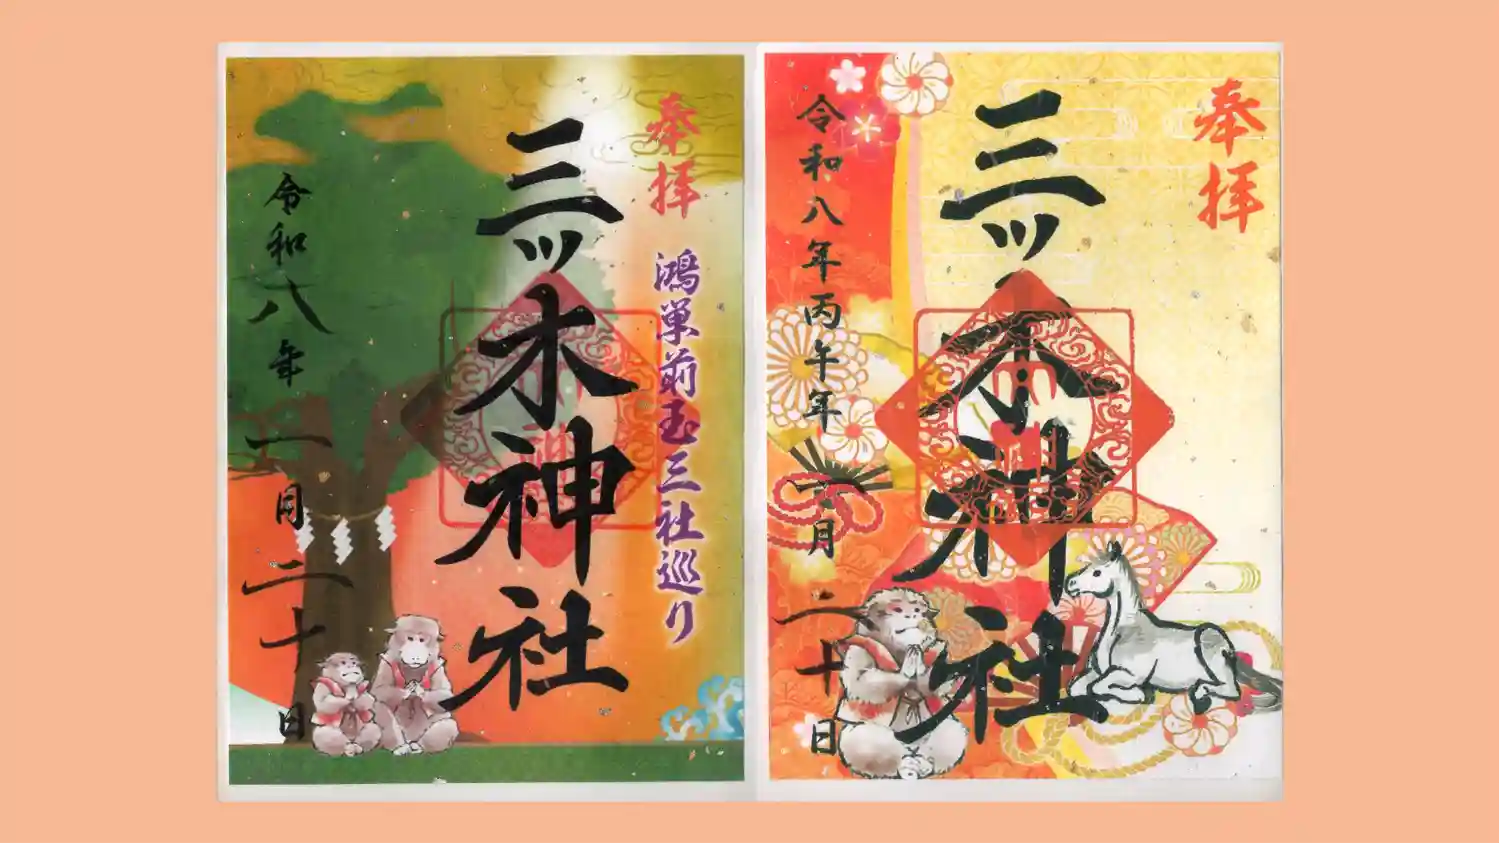 奉拝
鴻巣前玉三社巡り
三ッ木神社
令和八年
一月二十日
奉拝
三ッ木神社
令和八年丙午年一月二十日